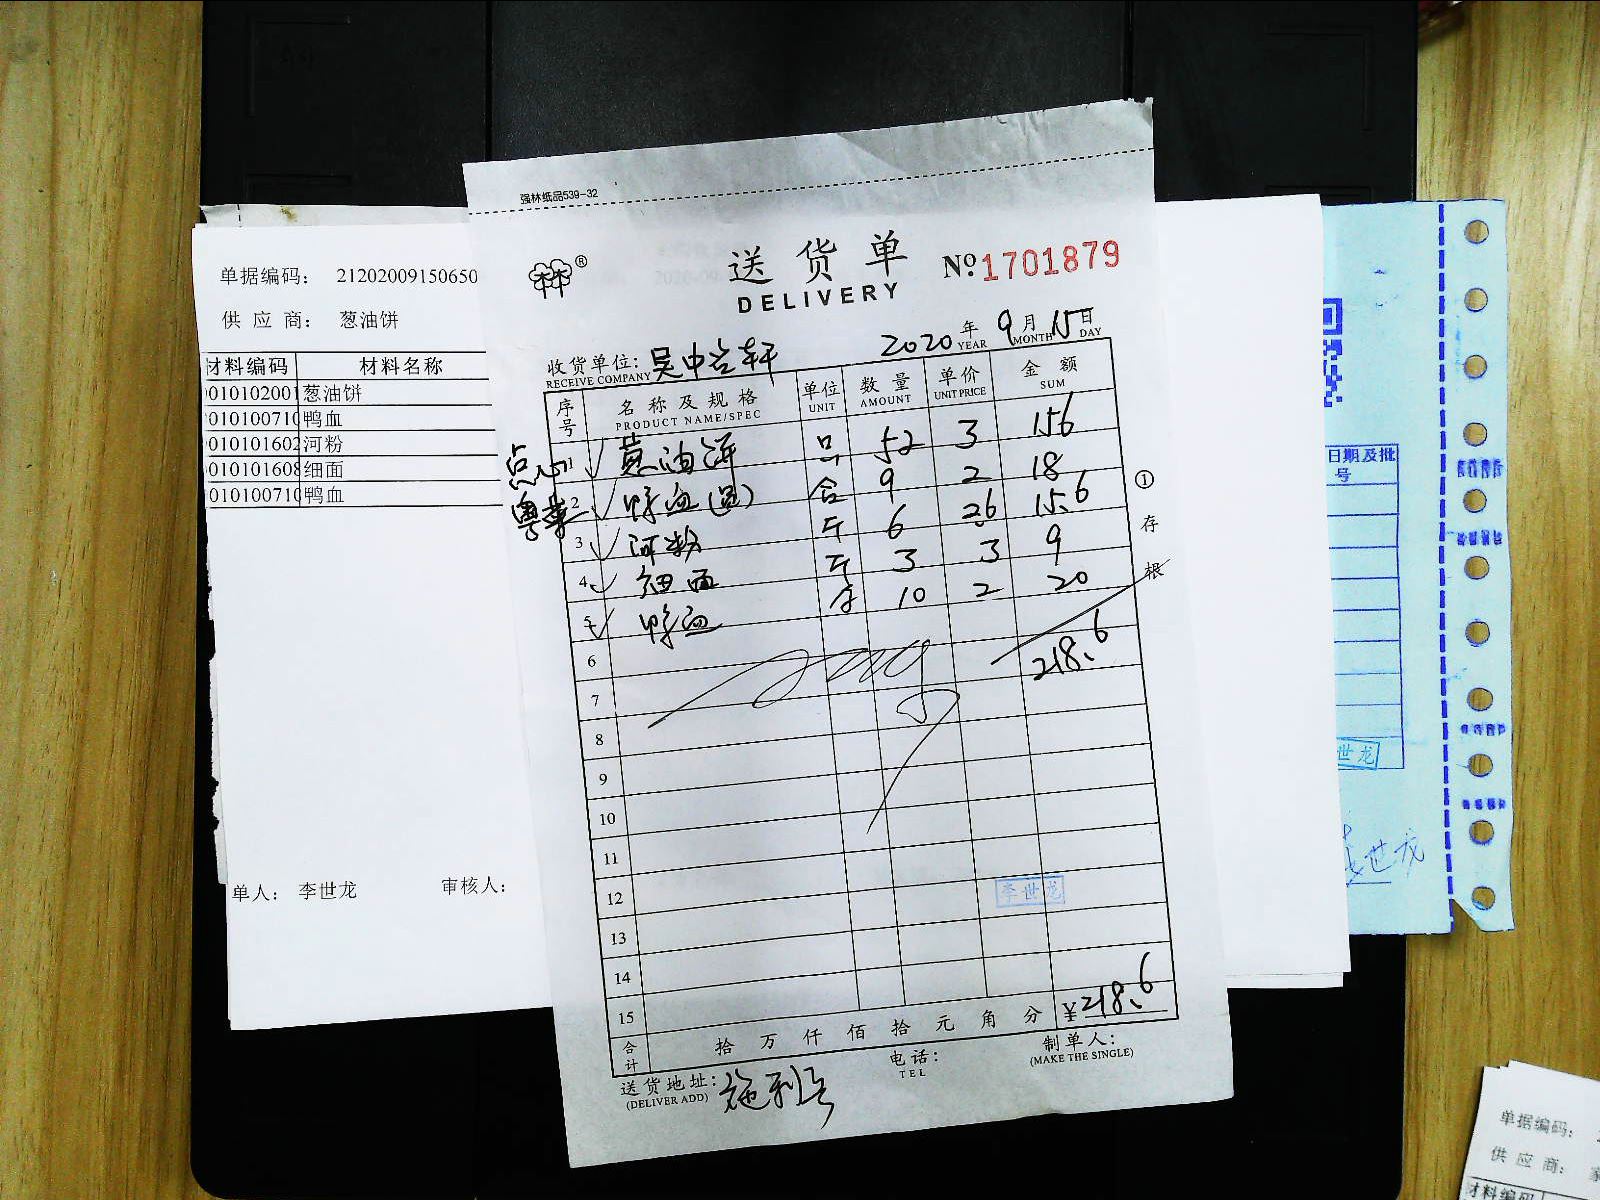 强林纸品539-32
送货单
DELIVERY
№1701879
®
2020年9月15日
YEAR MONTH DAY
收货单位:吴中
RECEIVE COMPANY
序号 名称及规格 单位 数量 单价 金额
PRODUCT NAME/SPEC UNIT AMOUNT UNIT PRICE SUM
点心 1 葱油饼 只 52 3 156
粤菜 2 鸭血(盒) 合 9 2 18
3 河粉 斤 6 2.6 15.6
4 细面 斤 3 3 9
5 鸭血 斤 10 2 20
6 218.6
7
8
9
10
11
12 李世龙
13
14
15
合计 拾万仟佰拾元角分 ¥218.6
送货地址: 电话: 制单人:
(DELIVER ADD) TEL (MAKE THE SINGLE)
①存根
单据编码: 21202009150650
供应商: 葱油饼
材料编码 材料名称
0101020010 葱油饼
010100710 鸭血
010101602 河粉
010101608 细面
010100710 鸭血
单人: 李世龙 审核人:
日期及批
号
世龙
世龙
单据编码:
供应商:
材料编码